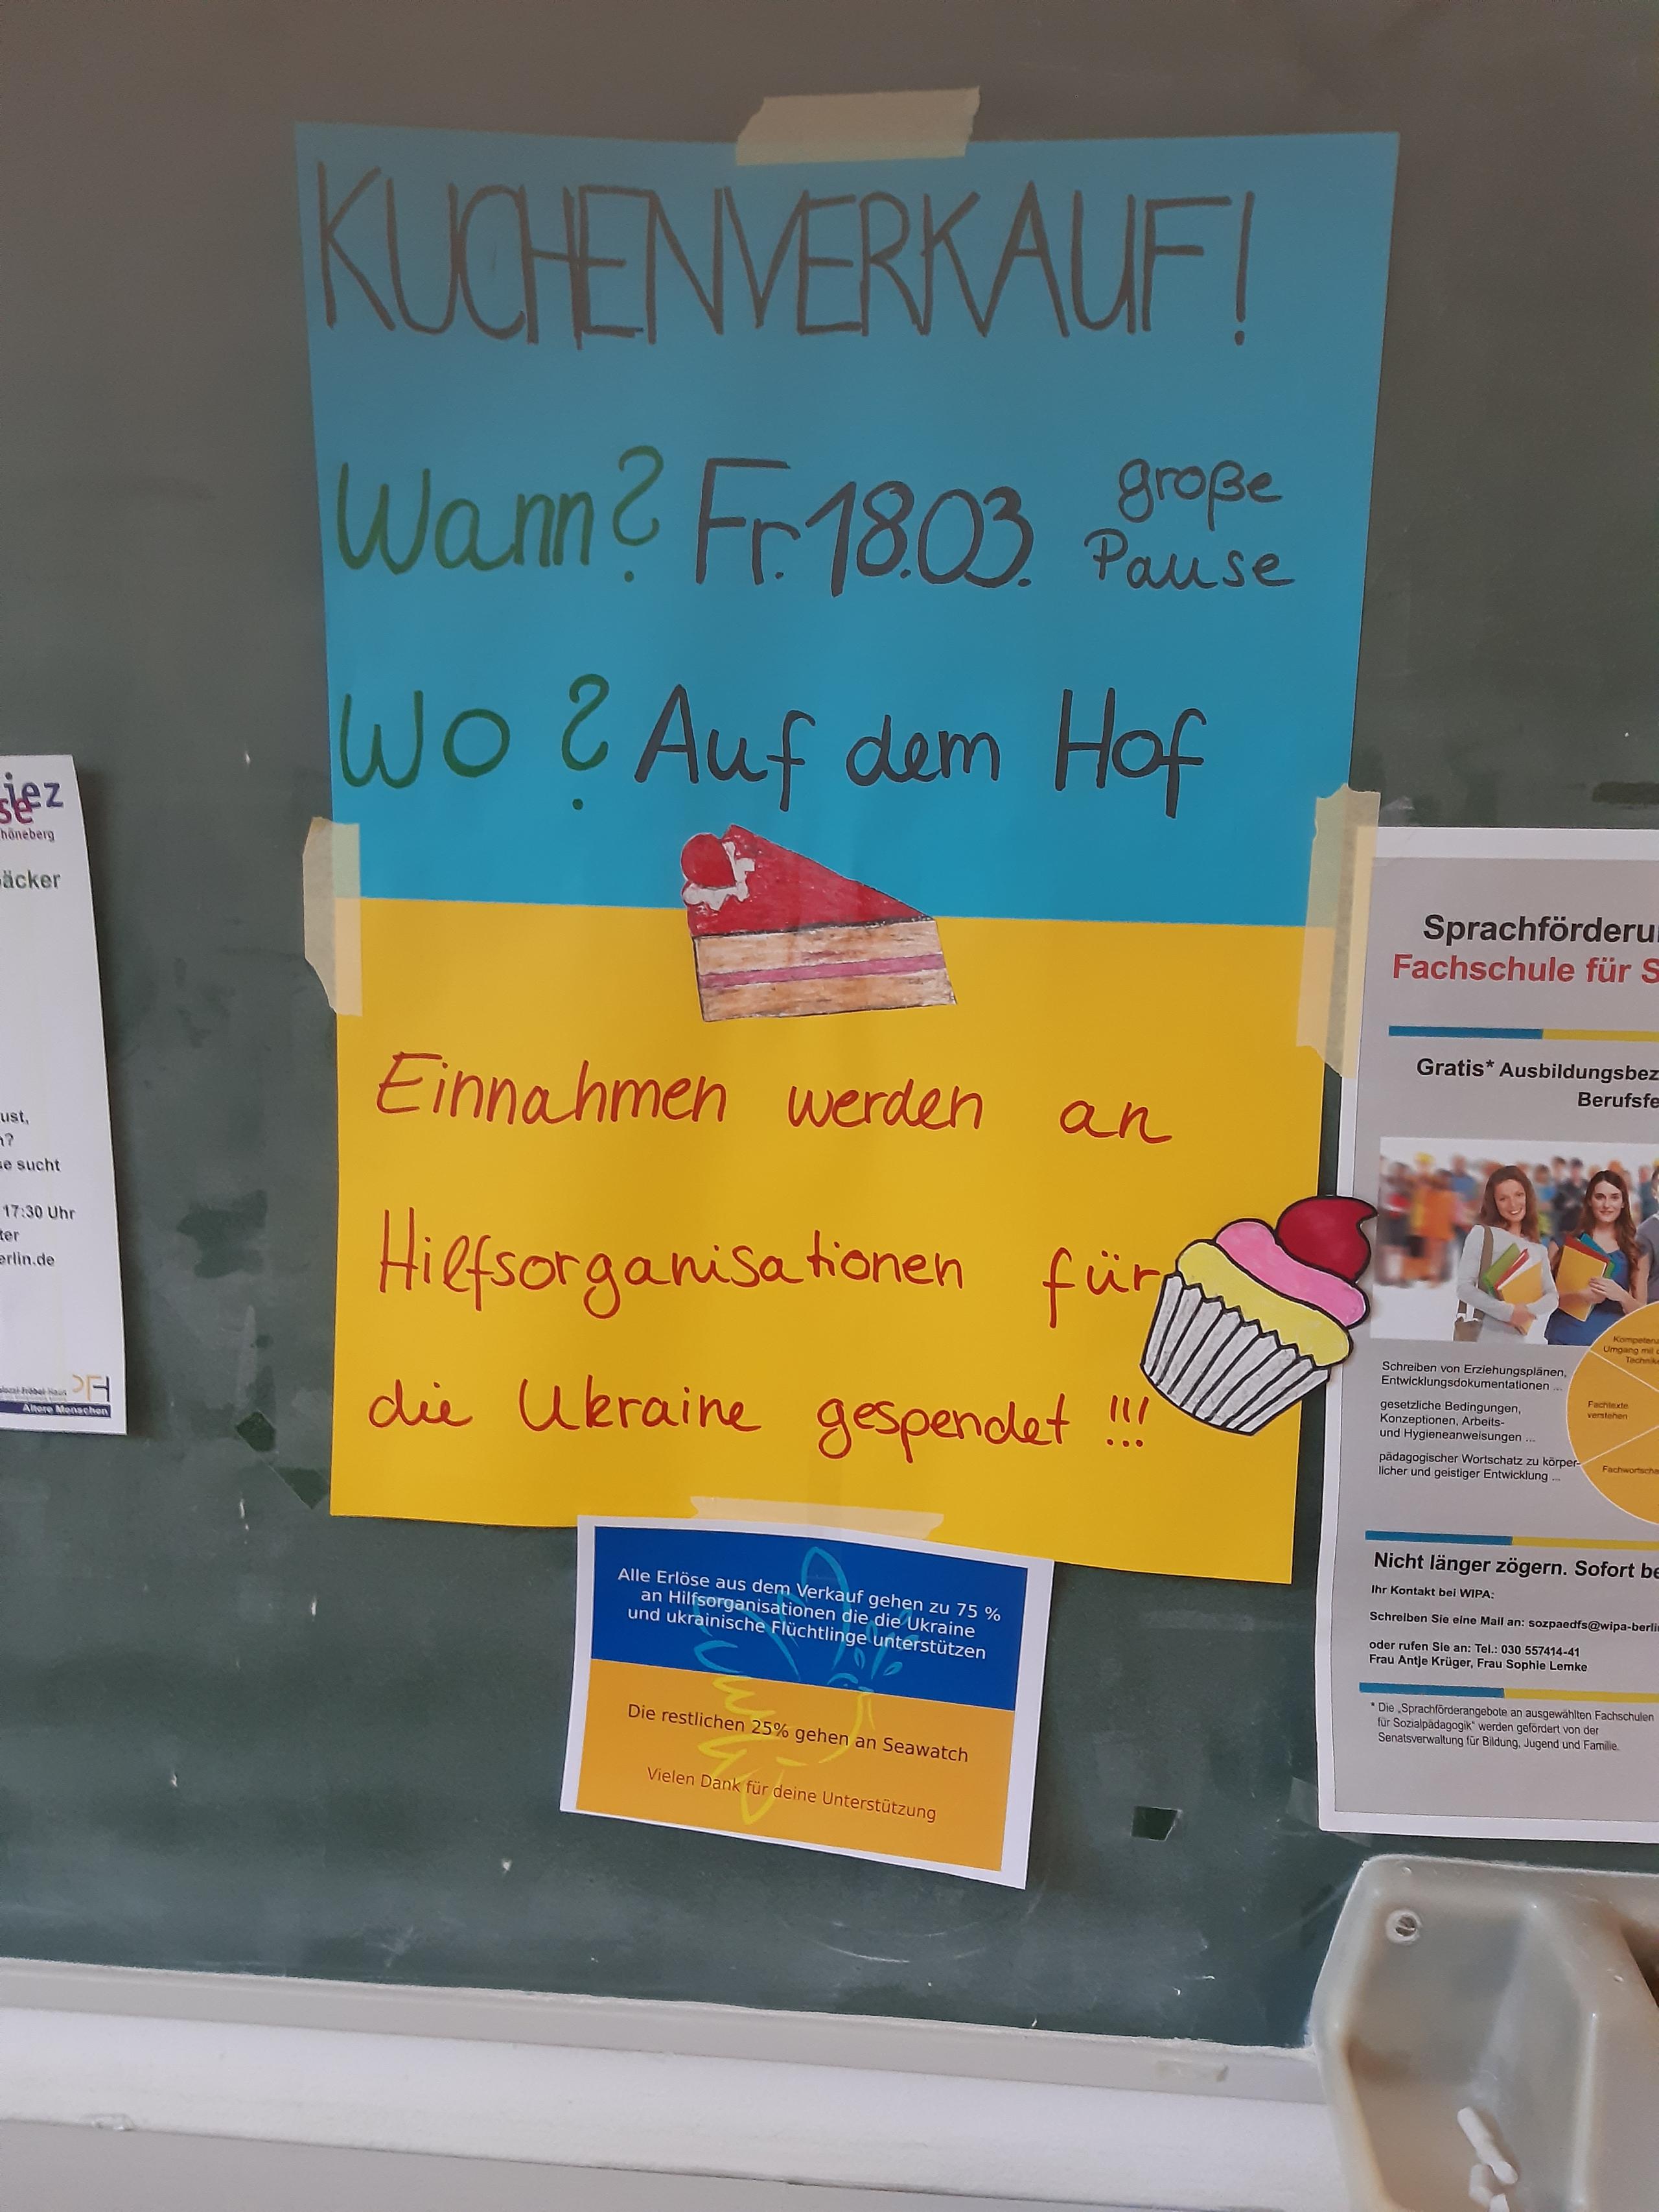 KUCHENVERKAUF!
Wann? Fr. 18.03. große
Pause
Wo? Auf dem Hof
Einnahmen werden an
Hilfsorganisationen für
die Ukraine gespendet !!!
Alle Erlöse aus dem Verkauf gehen zu 75 %
an Hilfsorganisationen die die Ukraine
und ukrainische Flüchtlinge unterstützen
Die restlichen 25% gehen an Seawatch
Vielen Dank für deine Unterstützung
iez
se
höneberg
äcker
ust,
n?
se sucht
17:30 Uhr
ter
erlin.de
Ältere Menschen
Sprachförderu
Fachschule für S
Gratis* Ausbildungsbez
Berufsfe
Schreiben von Erziehungsplänen,
Entwicklungsdokumentationen ...
gesetzliche Bedingungen,
Konzeptionen, Arbeits-
und Hygieneanweisungen ...
pädagogischer Wortschatz zu körper-
licher und geistiger Entwicklung ...
Kompeten
Umgang mit
Techni
Fachtexte
verstehen
Fachwortscha
Nicht länger zögern. Sofort be
Ihr Kontakt bei WIPA:
Schreiben Sie eine Mail an: sozpaedfs@wipa-berli
oder rufen Sie an: Tel.: 030 557414-41
Frau Antje Krüger, Frau Sophie Lemke
* Die „Sprachförderangebote an ausgewählten Fachschulen
für Sozialpädagogik" werden gefördert von der
Senatsverwaltung für Bildung, Jugend und Familie.